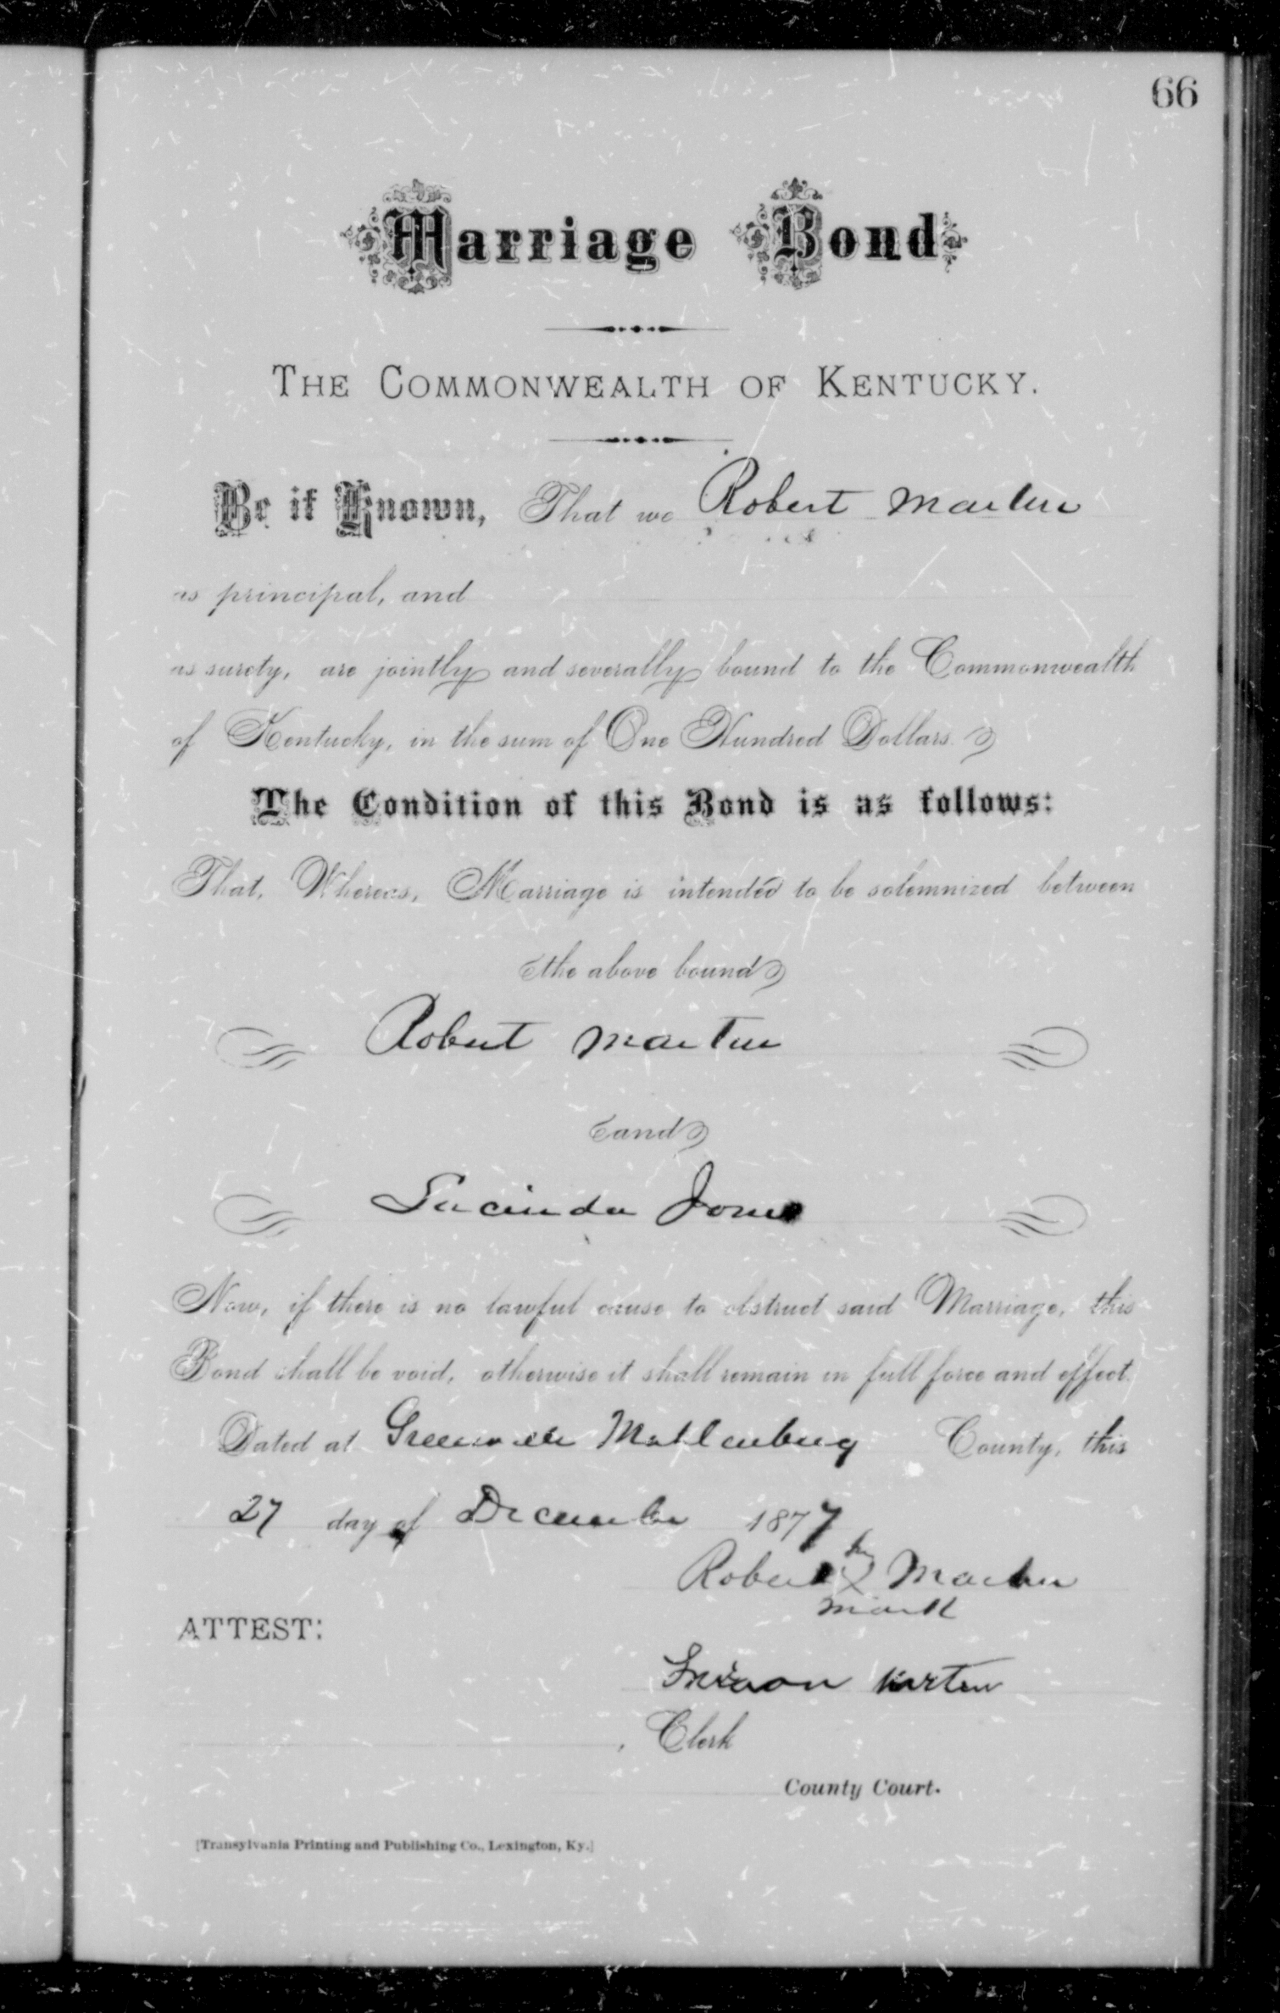 66
Marriage Bond
THE COMMONWEALTH OF KENTUCKY.
Be it Known, That we Robert Martin
as principal, and
as surety, are jointly and severally bound to the Commonwealth
of Kentucky, in the sum of One Hundred Dollars.
The Condition of this Bond is as follows:
That, Whereas, Marriage is intended to be solemnized between
the above bound
Robert Martin
and
Lucinda Jones
Now, if there is no lawful cause to obstruct said Marriage, this
Bond shall be void, otherwise it shall remain in full force and effect.
Dated at Greenville Muhlenburg County, this
27 day of December 1877
Robert X Martin
mark
ATTEST:
Clerk
County Court.
[Transylvania Printing and Publishing Co., Lexington, Ky.]